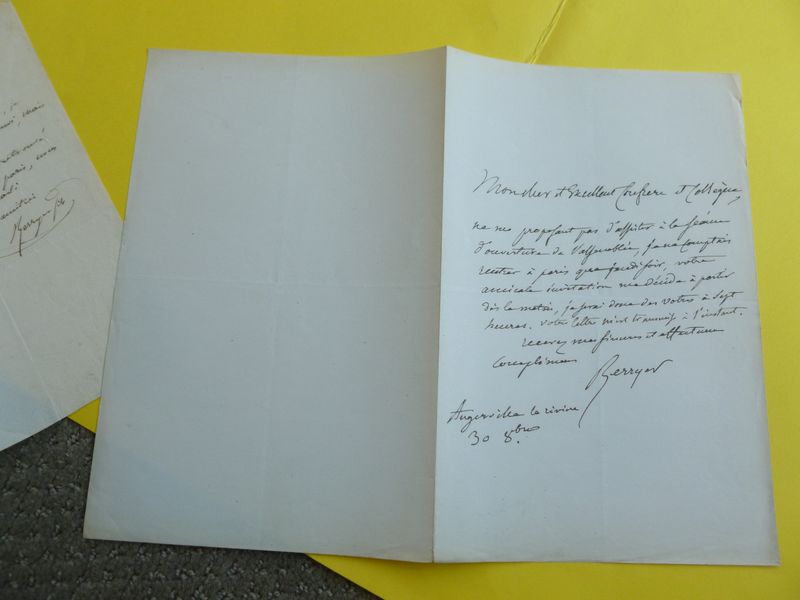 mais
paris, vous
Berryer
Mon cher et Excellent Confrere et Collègue,
ne me proposant pas d'assister à la séance
d'ouverture de l'assemblée, je ne comptais
rentrer à paris que jeudi soir, votre
amicale invitation me décide à partir
dès la matin, je serai donc des votres à Sept
heures. votre lettre m'est transmise à l'instant.
recevez mes sincères et affectueux
Complimens
Berryer
Angerville la rivière
30 8bre